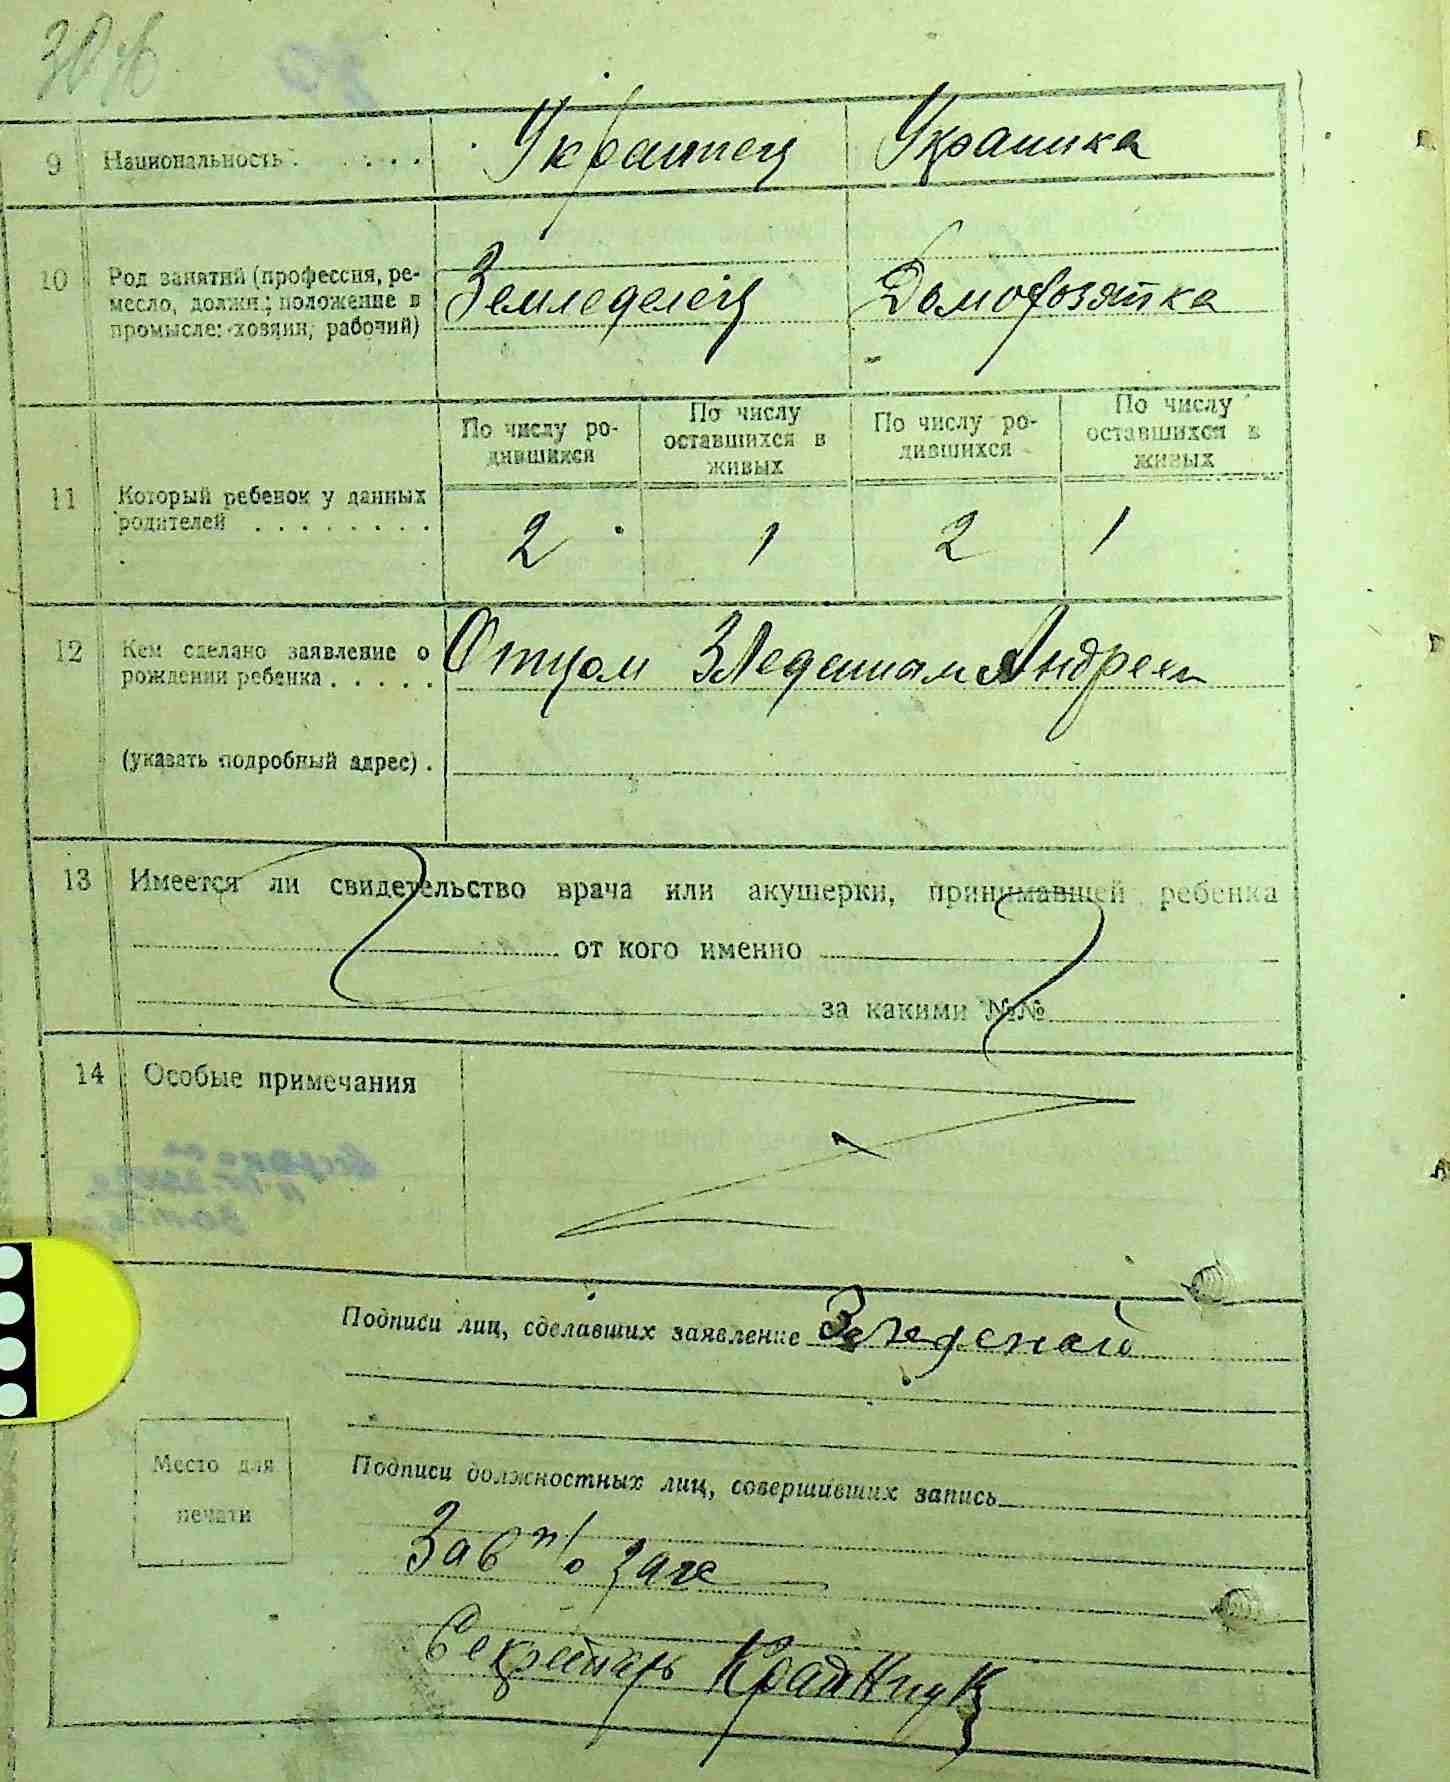 9 Национальность . . . . . Украинец Украинка
10 Род занятий (профессия, ре-
месло, должн.; положение в
промысле: хозяин, рабочий)
Земледелец Домохозяйка
По числу ро-
дившихся
По числу
оставшихся в
живых
По числу ро-
дившихся
По числу
оставшихся в
живых
11 Который ребенок у данных
родителей . . . . . . . .
2 1 2 1
12 Кем сделано заявление о
рождении ребенка . . . . .
Отцом Андреем
(указать подробный адрес) .
13 Имеется ли свидетельство врача или акушерки, принимавшей ребенка
от кого именно
за какими №№
14 Особые примечания
Подписи лиц, сделавших заявление
Место для
печати
Подписи должностных лиц, совершивших запись
Зав п/о загс
Секретарь